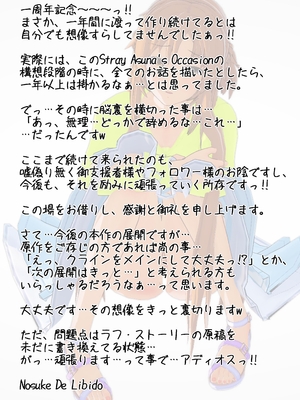 一周年記念～～～っ!!
まさか、一年間に渡って作り続けてるとは
自分でも想像すらしてませんでしたぁっ!!
実際には、このStray Asuna's Occasionの
構想段階の時に、全てのお話を描いたとしたら、
一年以上は掛かるなぁ…とは思ってました。
でっ…その時に脳裏を横切った事は…
「あっ、無理…どっかで辞めるな…これ…」
…だったんですw
ここまで続けて来られたのも、
嘘偽り無く御支援者様やフォロワー様のお陰ですし、
今後も、それを励みに頑張っていく所存ですっ!!
この場をお借りし、感謝と御礼を申し上げます。
さて…今後の本作の展開ですが…
原作をご存じの方であれば尚の事…
「えっ、クラインをメインにして大丈夫っ!?」とか、
「次の展開はきっと…」と考えられる方も
いらっしゃるだろうなぁ…って思います。
大丈夫です…その想像をきっと裏切りますw
ただ、問題点はラフ・ストーリーの原稿を
未だに書き換えてる状態…
がっ…頑張ります…って事で…アディオスっ!!
Nosuke De Libido